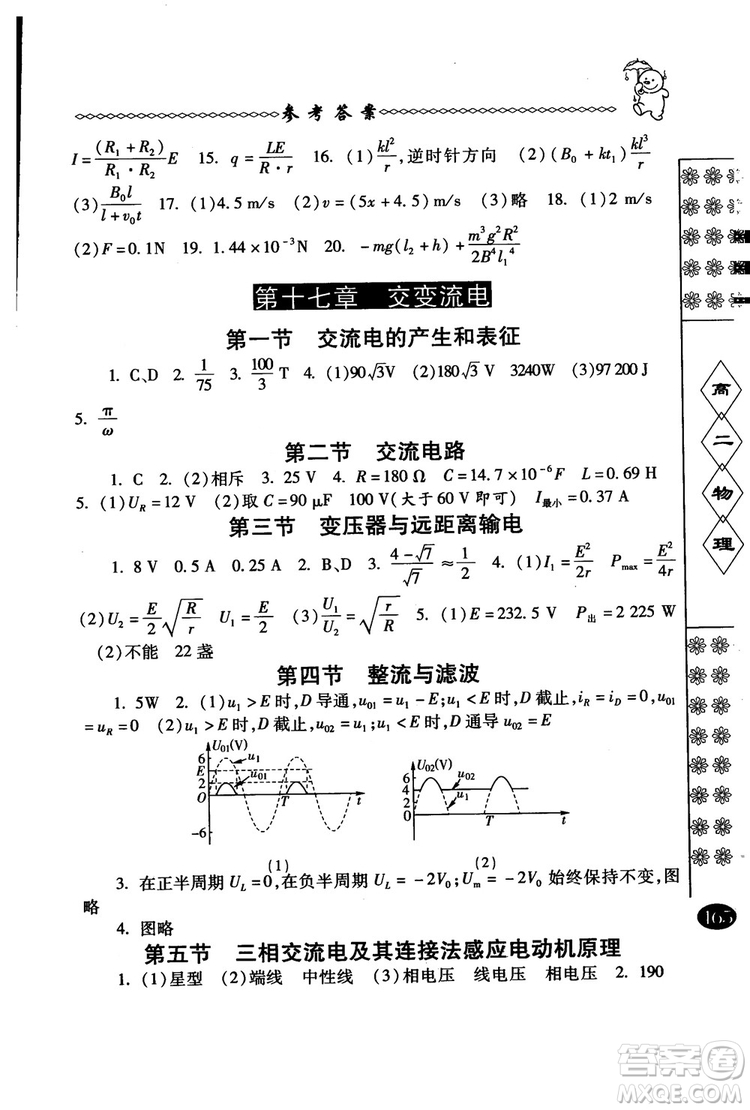 参考答案
I=\frac{(R₁+R₂)}{R₁·R₂}E 15. q=\frac{LE}{R·r} 16. (1)\frac{kl²}{r},逆时针方向 (2)(B₀+kt₁)\frac{kl³}{r}
(3)\frac{B₀l}{l+v₀t} 17. (1)4.5 m/s (2)v=(5x+4.5)m/s (3)略 18. (1)2 m/s
(2)F=0.1N 19. 1.44×10⁻³N 20. -mg(l₂+h)+\frac{m³g²R²}{2B⁴l₁⁴}
第十七章 交变流电
第一节 交流电的产生和表征
1. C、D 2. \frac{1}{75} 3. \frac{100}{3}T 4. (1)90√3V (2)180√3 V 3240W (3)97 200J
5. \frac{π}{ω}
第二节 交流电路
1. C 2. (2)相斥 3. 25 V 4. R=180 Ω C=14.7×10⁻⁶F L=0.69 H
5. (1)U_R=12 V (2)取 C=90 μF 100 V(大于 60 V 即可) I最小=0.37 A
第三节 变压器与远距离输电
1. 8 V 0.5 A 0.25 A 2. B、D 3. \frac{4-√7}{√7}≈\frac{1}{2} 4. (1)I₁=\frac{E²}{2r} P_max=\frac{E²}{4r}
(2)U₂=\frac{E}{2}\sqrt{\frac{R}{r}} U₁=\frac{E}{2} (3)\frac{U₁}{U₂}=\sqrt{\frac{r}{R}} 5. (1)E=232.5 V P出=2 225 W
(2)不能 22 盏
第四节 整流与滤波
1. 5W 2. (1)u₁>E 时,D 导通,u₀₁=u₁-E;u₁<E 时,D 截止,i_R=i_D=0,u₀₁
=u_R=0 (2)u₁>E 时,D 截止,u₀₂=u₁;u₁<E 时,D 通导 u₀₂=E
U₀₁(V) u₁
6
E
2 u₀₁
O T t
-6
(1)
U₀₂(V)
6 u₀₂
4 u₁
0 T t
(2)
3. 在正半周期 U_L=0,在负半周期 U_L=-2V₀;U_m=-2V₀ 始终保持不变,图
略
4. 图略
第五节 三相交流电及其连接法感应电动机原理
1. (1)星型 (2)端线 中性线 (3)相电压 线电压 相电压 2. 190
高
二
物
理
165
答案卷
MXQE.COM